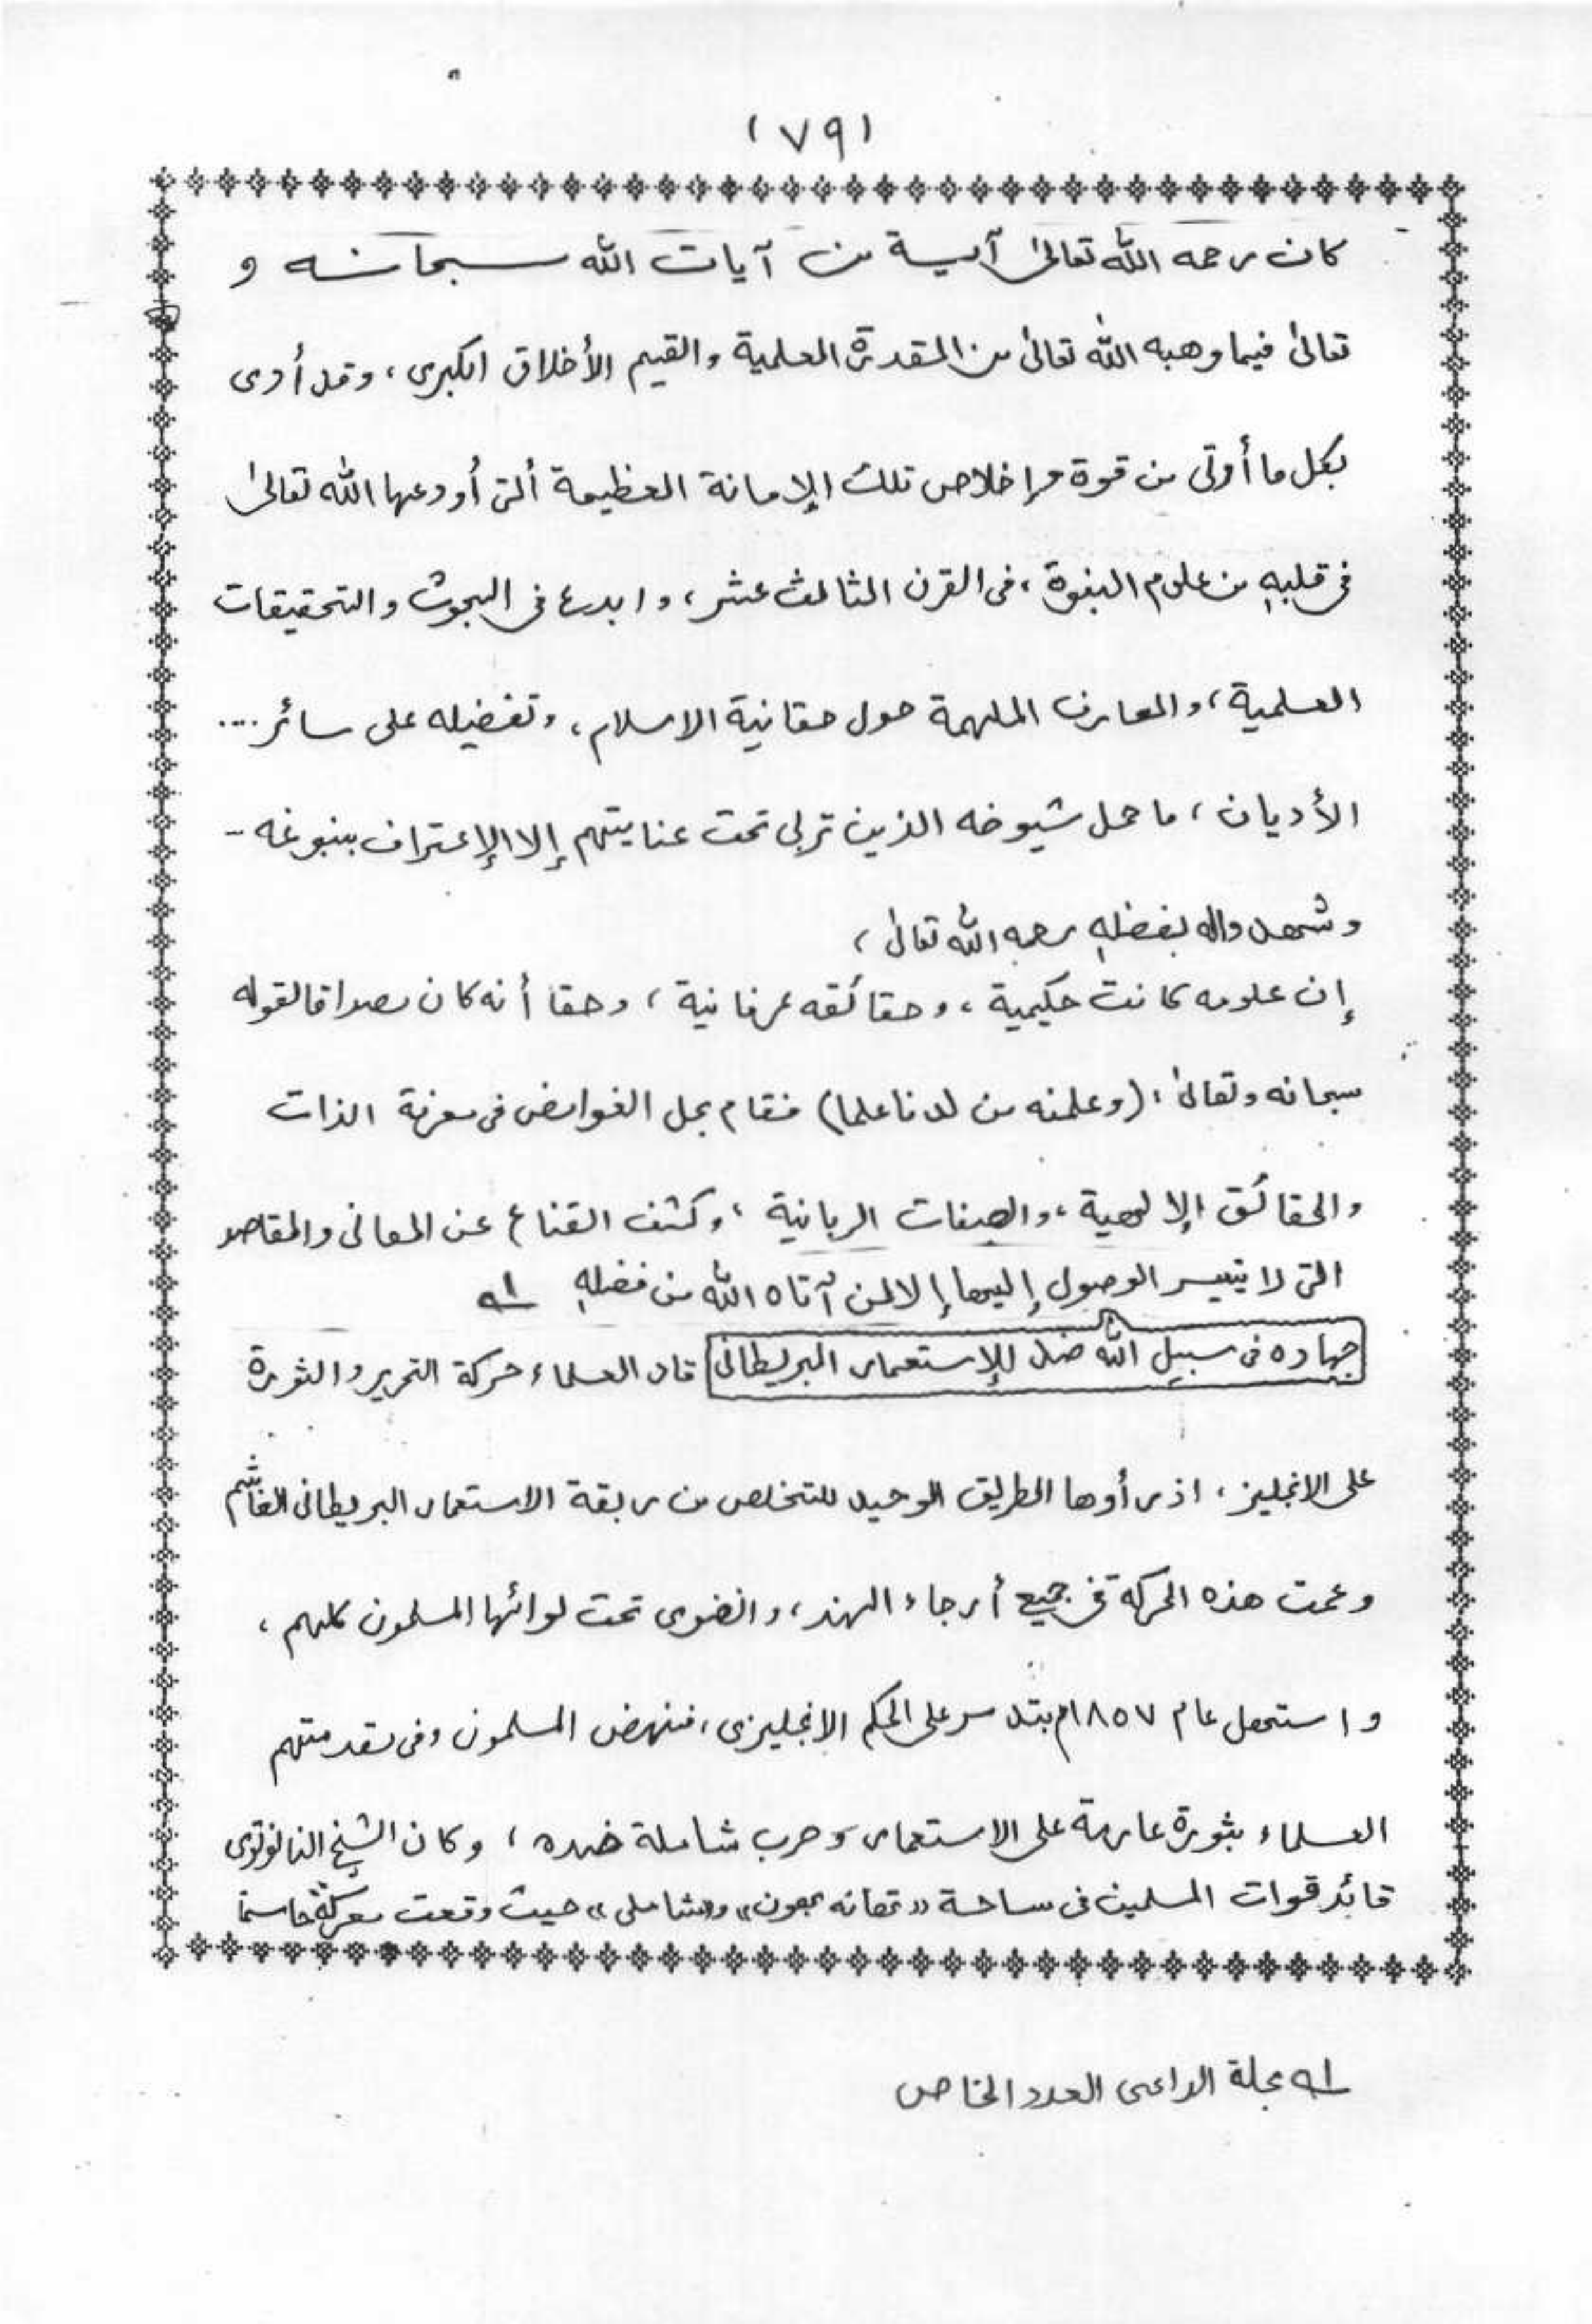 (٧٩)
كان رحمه الله تعالىٰ آية من آيات الله سبحانه و
تعالىٰ فيما وهبه الله تعالىٰ من المقدرة العلمية والقيم الأخلاق الكبرى، وقد أدى
بكل ما أوتى من قوة وإخلاص تلك الإمانة العظيمة ألتى أودعها الله تعالىٰ
فى قلبهٖ من علوم النبوة، فى القرن الثالث عشر، وابدع فى البحوث والتحقيقات
العلمية، والمعارف الملهمة حول حقانية الاسلام، وتفضيله على سائر ....
الأديان، ما حمل شيوخه الذين تربى تحت عنايتهم إلا الإعتراف بنبوغه -
وشهدواله بفضلهٖ رحمه الله تعالىٰ،
إن علومه كانت حكيمية، وحقائقه عرفانية، وحقا أنه كان مصداقا لقوله
سبحانه وتعالىٰ: (وعلمنه من لدنا علما) فقام بحل الغوامض فى معرفة الذات
والحقائق الإلهية، والصفات الربانية، وكشف القناع عن المعانى والمقاصد
التى لا يتيسر الوصول إليها إلا لمن آتاه الله من فضلهٖ ١ــه
جهاده فى سبيل الله ضد للإستعمار البريطانى قاد العلماء حركة التحرير والثورة
على الانجليز، اذ رأوها الطريق الوحيد للتخلص من ربقة الاستعمار البريطانى الغاشم
وعمت هذه الحركة فى جميع أرجاء الهند، وانضوى تحت لوائها المسلمون كلهم،
واستهل عام ١٨٥٧م على الحكم الانجليزى، فنهض المسلمون وفى مقدمتهم
العلماء بثورة عارمة على الاستعمار وحرب شاملة ضده، وكان الشيخ النانوتوى
قائد قوات المسلمين فى ساحة «تهانه بهون» و«شاملى» حيث وقعت معركة حاسمة
١ــه مجلة الداعى العدد الخاص